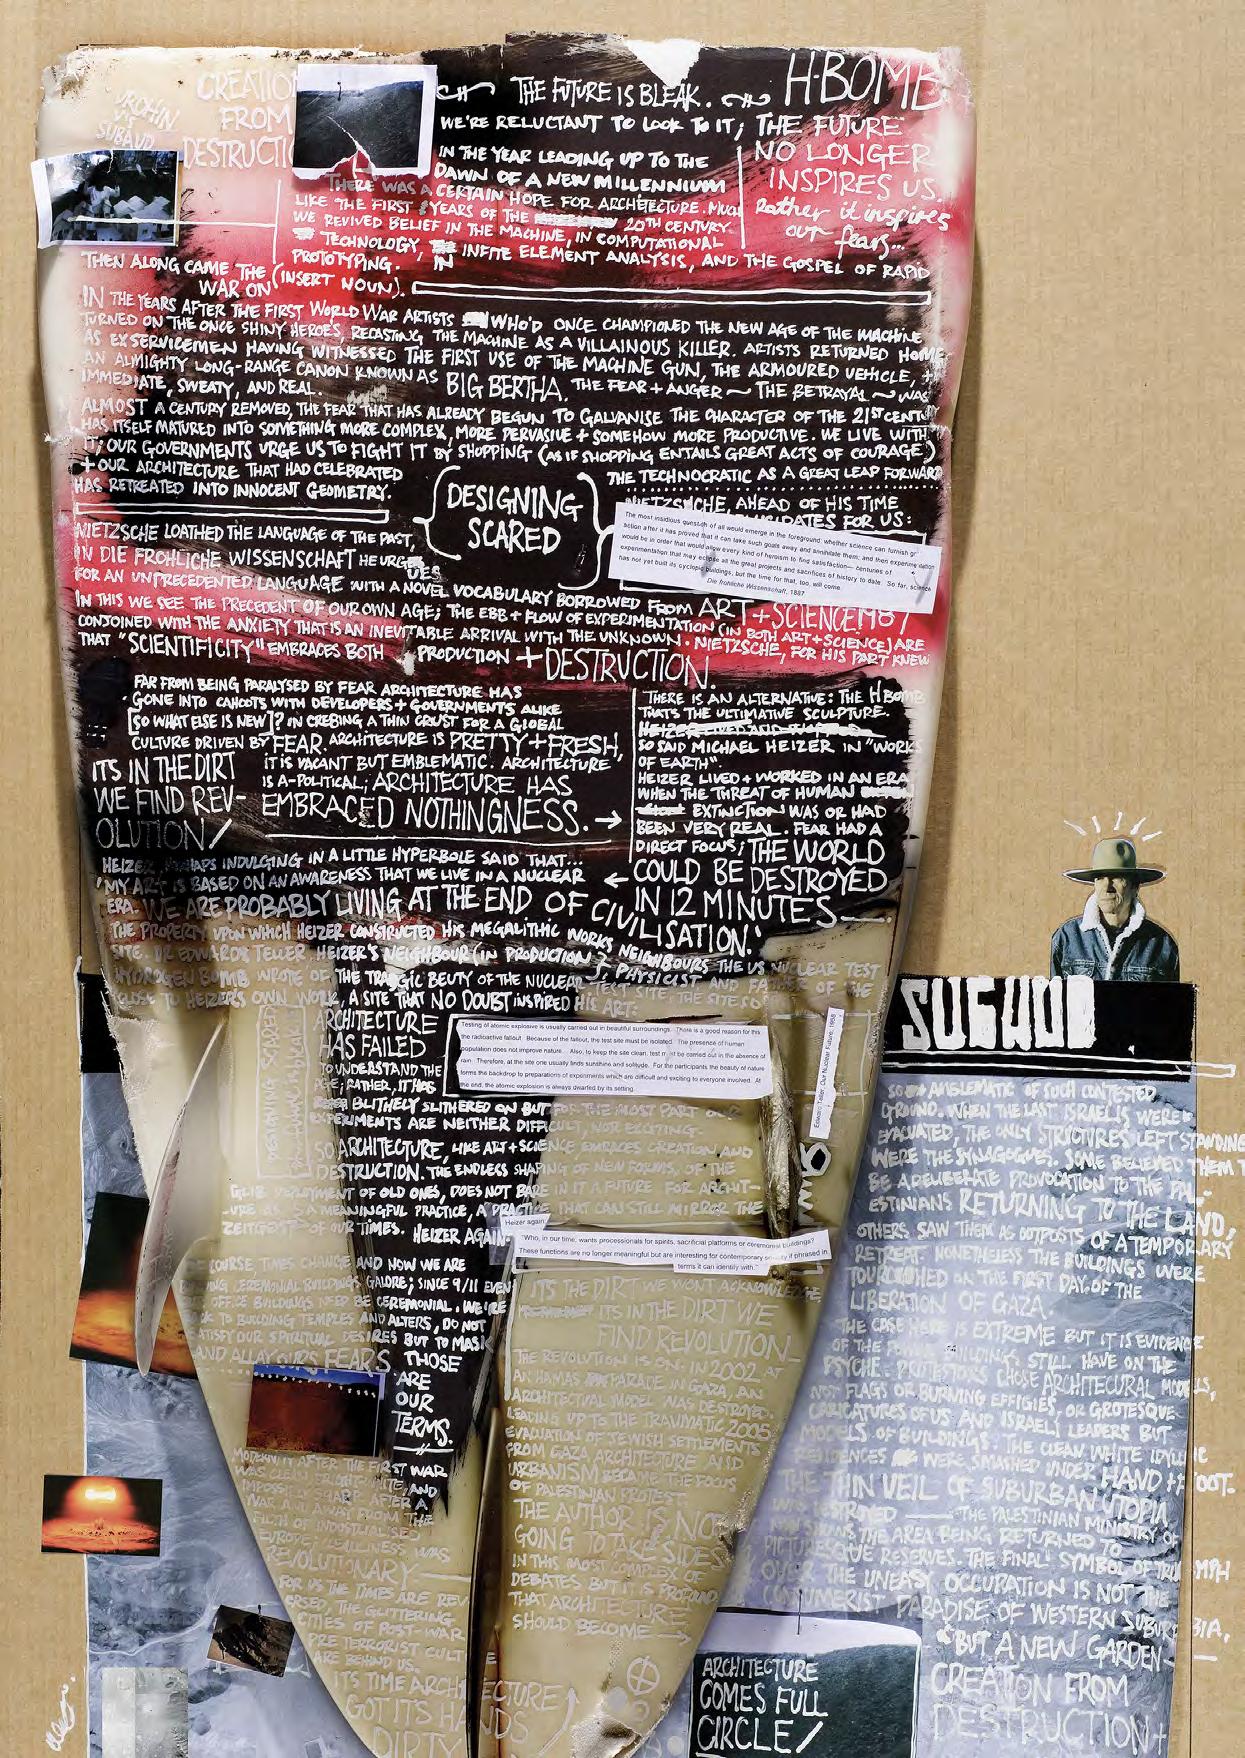 CREATION
FROM
DESTRUCTI
UROHIN
VS
SUBAUD
THE FUTURE IS BLEAK.
H-BOMB
WE'RE RELUCTANT TO LOOK TO IT; THE FUTURE
NO LONGER
INSPIRES US.
Rather it inspires
our fears...
IN THE YEAR LEADING UP TO THE
DAWN OF A NEW MILLENNIUM
THERE WAS A CERTAIN HOPE FOR ARCHITECTURE. MUCH
LIKE THE FIRST YEARS OF THE 20TH CENTURY.
WE REVIVED BELIEF IN THE MACHINE, IN COMPUTATIONAL
TECHNOLOGY, IN INFITE ELEMENT ANALYSIS, AND THE GOSPEL OF RAPID
PROTOTYPING.
THEN ALONG CAME THE
WAR ON (INSERT NOUN).
IN THE YEARS AFTER THE FIRST WORLD WAR ARTISTS WHO'D ONCE CHAMPIONED THE NEW AGE OF THE MACHINE
TURNED ON THE ONCE SHINY HEROES, RECASTING THE MACHINE AS A VILLAINOUS KILLER. ARTISTS RETURNED HOME
AS EX SERVICEMEN HAVING WITNESSED THE FIRST USE OF THE MACHINE GUN, THE ARMOURED VEHICLE, +
AN ALMIGHTY LONG-RANGE CANON KNOWN AS BIG BERTHA. THE FEAR + ANGER ~ THE BETRAYAL ~ WAS
IMMEDIATE, SWEATY, AND REAL.
ALMOST A CENTURY REMOVED, THE FEAR THAT HAS ALREADY BEGUN TO GALVANISE THE CHARACTER OF THE 21ST CENTURY
HAS ITSELF MATURED INTO SOMETHING MORE COMPLEX, MORE PERVASIVE + SOMEHOW MORE PRODUCTIVE. WE LIVE WITH
IT; OUR GOVERNMENTS URGE US TO FIGHT IT BY SHOPPING (AS IF SHOPPING ENTAILS GREAT ACTS OF COURAGE)
+ OUR ARCHITECTURE THAT HAD CELEBRATED
THE TECHNOCRATIC AS A GREAT LEAP FORWARD
HAS RETREATED INTO INNOCENT GEOMETRY.
DESIGNING
SCARED
NIETZSCHE, AHEAD OF HIS TIME
FOR US:
The most insidious question of all would emerge in the foreground: whether science can furnish
action after it has proved that it can take such goals away and annihilate them; and then experimentation
would be in order that would allow every kind of heroism to find satisfaction— centuries of
experimentation that may eclipse all the great projects and sacrifices of history to date. So far, science
has not yet built its cyclopic buildings, but the time for that, too, will come.
Die frohliche Wissenschaft, 1887
NIETZSCHE LOATHED THE LANGUAGE OF THE PAST,
IN DIE FROHLICHE WISSENSCHAFT HE URGES
FOR AN UNPRECEDENTED LANGUAGE WITH A NOVEL VOCABULARY BORROWED FROM ART + SCIENCE
IN THIS WE SEE THE PRECEDENT OF OUR OWN AGE; THE EBB + FLOW OF EXPERIMENTATION (IN BOTH ART + SCIENCE) ARE
CONJOINED WITH THE ANXIETY THAT IS AN INEVITABLE ARRIVAL WITH THE UNKNOWN. NIETZSCHE, FOR HIS PART KNEW
THAT "SCIENTIFICITY" EMBRACES BOTH PRODUCTION + DESTRUCTION.
FAR FROM BEING PARALYSED BY FEAR ARCHITECTURE HAS
GONE INTO CAHOOTS WITH DEVELOPERS + GOVERNMENTS ALIKE
[SO WHAT ELSE IS NEW]? IN CREBING A THIN CRUST FOR A GLOBAL
CULTURE DRIVEN BY FEAR. ARCHITECTURE IS PRETTY + FRESH,
IT IS VACANT BUT EMBLEMATIC. ARCHITECTURE
IS A-POLITICAL; ARCHITECTURE HAS
EMBRACED NOTHINGNESS. →
ITS IN THE DIRT
WE FIND REV-
OLUTION/
THERE IS AN ALTERNATIVE: THE H BOMB
THATS THE ULTIMATIVE SCULPTURE.
SO SAID MICHAEL HEIZER IN "WORKS
OF EARTH".
HEIZER LIVED + WORKED IN AN ERA
WHEN THE THREAT OF HUMAN
EXTINCTION WAS OR HAD
BEEN VERY REAL. FEAR HAD A
DIRECT FOCUS; THE WORLD
← COULD BE DESTROYED
IN 12 MINUTES
HEIZER PERHAPS INDULGING IN A LITTLE HYPERBOLE SAID THAT...
'MY ART IS BASED ON AN AWARENESS THAT WE LIVE IN A NUCLEAR
ERA. WE ARE PROBABLY LIVING AT THE END OF CIVILISATION.'
THE PROPERTY UPON WHICH HEIZER CONSTRUCTED HIS MEGALITHIC WORKS NEIGHBOURS THE US NUCLEAR TEST
SITE. DR EDWARD TELLER, HEIZER'S NEIGHBOUR (IN PRODUCTION), PHYSICIST AND FATHER OF THE
HYDROGEN BOMB WROTE OF THE TRAGIC BEUTY OF THE NUCLEAR TEST SITE. THE SITE IS
CLOSE TO HEIZERS OWN WORK, A SITE THAT NO DOUBT INSPIRED HIS ART:
ARCHITECTURE
HAS FAILED
TO UNDERSTAND THE
RATHER, IT HAS
BLITHELY SLITHERED ON BUT FOR THE MOST PART OUR
EXPERIMENTS ARE NEITHER DIFFICULT, NOR EXCITING.
Testing of atomic explosive is usually carried out in beautiful surroundings. There is a good reason for this
the radioactive fallout. Because of the fallout, the test site must be isolated. The presence of human
population does not improve nature. Also, to keep the site clean, test must be carried out in the absence of
rain. Therefore, at the site one usually finds sunshine and solitude. For the participants the beauty of nature
forms the backdrop to preparations of experiments which are difficult and exciting to everyone involved. At
the end, the atomic explosion is always dwarfed by its setting.
Edward Teller, Our Nuclear Future, 1958
DESIGNING SCARED
SO ARCHITECTURE, LIKE ART + SCIENCE EMBRACES CREATION AND
DESTRUCTION. THE ENDLESS SHAPING OF NEW FORMS, OF THE
GLIB DEPLOYMENT OF OLD ONES, DOES NOT BARE IN IT A FUTURE FOR ARCHIT-
URE AS A MEANINGFUL PRACTICE, A PRACTICE THAT CAN STILL MIRROR THE
ZEITGEIST OF OUR TIMES. HEIZER AGAIN:
Heizer again:
"Who, in our time, wants processionals for spirits, sacrificial platforms or ceremonial buildings?
These functions are no longer meaningful but are interesting for contemporary society if phrased in
terms it can identify with."
OF COURSE TIMES CHANGE AND NOW WE ARE
CEREMONIAL BUILDINGS GALORE; SINCE 9/11 EVEN
OFFICE BUILDINGS NEED BE CEREMONIAL. WE'RE
BACK TO BUILDING TEMPLES AND ALTERS, DO NOT
SATISFY OUR SPIRITUAL DESIRES BUT TO MASK
AND ALLAY OURS FEARS THOSE
ARE
OUR
TERMS.
ITS THE DIRT WE MUST ACKNOWLEDGE
ITS IN THE DIRT WE
FIND REVOLUTION
THE REVOLUTION IS ON IN 2002 AT
AN HAMAS PARADE IN GAZA, AN
ARCHITECTURAL MODEL WAS DESTROYED.
LEADING UP TO THE TRAUMATIC 2005
EVACUATION OF JEWISH SETTLEMENTS
FROM GAZA ARCHITECTURE AND
URBANISM BECAME THE FOCUS
OF PALESTINIAN PROTEST.
THE AUTHOR IS NOT
GOING TO TAKE SIDES
IN THIS MOST COMPLEX OF
DEBATES BUT IT IS PROFOUND
THAT ARCHITECTURE
SHOULD BECOME →
MODERNITY AFTER THE FIRST WAR
WAS CLEAN, BRIGHT, WHITE, AND
IMPOSSIBLY SHARP AFTER A
WAR AND AWAY FROM THE
FILTH OF INDUSTRIALISED
EUROPE CLEANLINESS WAS
REVOLUTIONARY
FOR US THE TIMES ARE REV
ERSED. THE GLITTERING
CITIES OF POST-WAR
PRE TERRORIST
ARE BEHIND US.
ITS TIME ARCHITECTURE
GOT ITS HANDS
DIRTY
SUGHUD
SO EMBLEMATIC OF SUCH CONTESTED
GROUND. WHEN THE LAST ISRAELIS WERE
EVACUATED, THE ONLY STRUCTURES LEFT STANDING
WERE THE SYNAGOGUES. SOME BELIEVED THEM T
BE A DELIBERATE PROVOCATION TO THE PAL-
ESTINIANS RETURNING TO THE LAND,
OTHERS SAW THEM AS OUTPOSTS OF A TEMPORARY
RETREAT. NONETHELESS THE BUILDINGS WERE
TOURCHED ON THE FIRST DAY OF THE
LIBERATION OF GAZA.
THE CASE HERE IS EXTREME BUT IT IS EVIDENCE
OF THE POWER BUILDINGS STILL HAVE ON THE
PSYCHE. PROTESTORS CHOSE ARCHITECURAL MODELS,
NOT FLAGS OR BURNING EFFIGIES, OR GROTESQUE
CARICATURES OF US AND ISRAELI LEADERS BUT
MODELS OF BUILDINGS. THE CLEAN WHITE IDYLLIC
RESIDENCES WERE SMASHED UNDER HAND + FOOT.
THE THIN VEIL OF SUBURBAN UTOPIA
THE PALESTINIAN MINISTRY OF
THE AREA BEING RETURNED TO
PICTURESQUE RESERVES. THE FINAL SYMBOL OF TRIUMPH
OVER THE UNEASY OCCUPATION IS NOT THE
CONSUMERIST PARADISE OF WESTERN SUBURBIA,
BUT A NEW GARDEN
CREATION FROM
DESTRUCTION +
ARCHITECTURE
COMES FULL
CIRCLE/